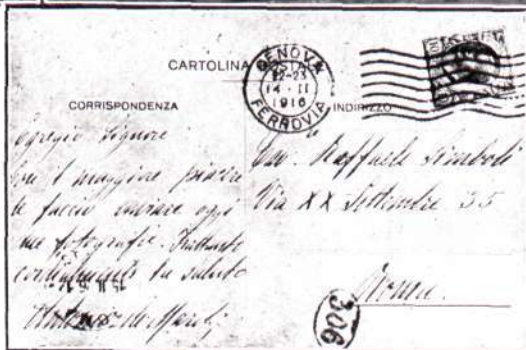 CARTOLINA POSTALE
GENOVA
22-23
14·II
1916
FERROVIA
CORRISPONDENZA
INDIRIZZO
Egregio Signore
con maggiore piacere
le faccio inviare oggi
fotografie. Frattanto
cordialmente La saluto
Cav. Raffaele Simboli
Via XX Settembre 35
Roma
306